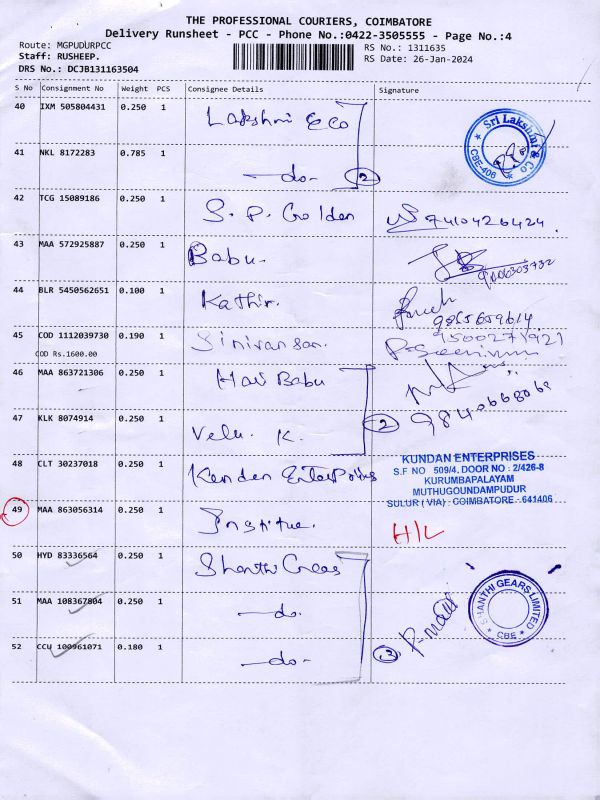 THE PROFESSIONAL COURIERS, COIMBATORE
Delivery Runsheet - PCC - Phone No.:0422-3505555 - Page No.:4
Route: MGPUDURPCC RS No.: 1311635
Staff: RUSHEEP. RS Date: 26-Jan-2024
DRS No.: DCJB131163504
S No Consignment No Weight PCS Consignee Details Signature
40 IXM 505804431 0.250 1 Lakshmi & Co
Sri Lakshmi & Co
CBE-406
41 NKL 8172283 0.785 1 -do- 2
42 TCG 15089186 0.250 1 S. P. Golden 7410426424
43 MAA 572925887 0.250 1 Babu.
44 BLR 5450562651 0.100 1 Kathir.
45 COD 1112039730 0.190 1 Sinivasan.
COD Rs.1600.00
46 MAA 863721306 0.250 1 Hari Babu
47 KLK 8074914 0.250 1 Velu. K. 2 9840668069
48 CLT 30237018 0.250 1 Kenden Enterprises
KUNDAN ENTERPRISES
S.F NO 509/4, DOOR NO : 2/426-8
KURUMBAPALAYAM
MUTHUGOUNDAMPUDUR
SULUR ( VIA ) : COIMBATORE - 641406
49 MAA 863056314 0.250 1 Institue. H/L
50 HYD 83336564 0.250 1 Shanthi Gears
51 MAA 108367804 0.250 1 -do-
SHANTHI GEARS LIMITED
CBE
52 CCU 100961071 0.180 1 -do- 3